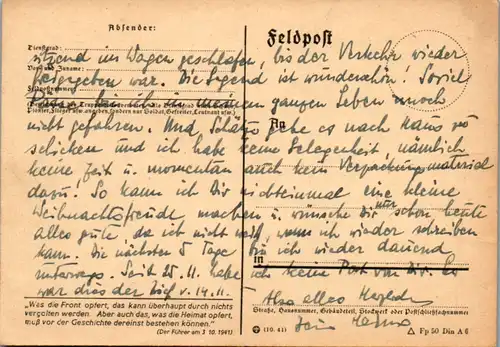 Absender:
Feldpost
Dienstgrad:
sitzend im Wagen geschlafen, bis der Verkehr wieder
Vor- und Zuname:
freigegeben war. Die Gegend ist wunderschön! Soviel
Feldpostnummer:
bin ich in meinem ganzen Leben noch
nicht gefahren. Und Schätze gäbe es nach Haus zu
An
schicken und ich habe keine Gelegenheit, nämlich
keine Zeit u. momentan auch kein Verpackungsmaterial
dazu. So kann ich Dir nichteinmal eine kleine
Weihnachtsfreude machen u. wünsche Dir nur schon heute
alles gute, da ich nicht weiß, wann ich wieder schreiben
kann. Die nächsten 5 Tage bin ich wieder dauernd
in
unterwegs. Seit 25.11. habe ich keine Post von Dir. Es
war dies der Brief v. 14.11.
Also alles Herzliche
Dein
Straße, Hausnummer, Gebäudeteil, Stockwerk oder Postschließfachnummer
„Was die Front opfert, das kann überhaupt durch nichts
vergolten werden. Aber auch das, was die Heimat opfert,
muß vor der Geschichte dereinst bestehen können."
(Der Führer am 3 10. 1941)
(10. 41)
△ Fp 50 Din A 6